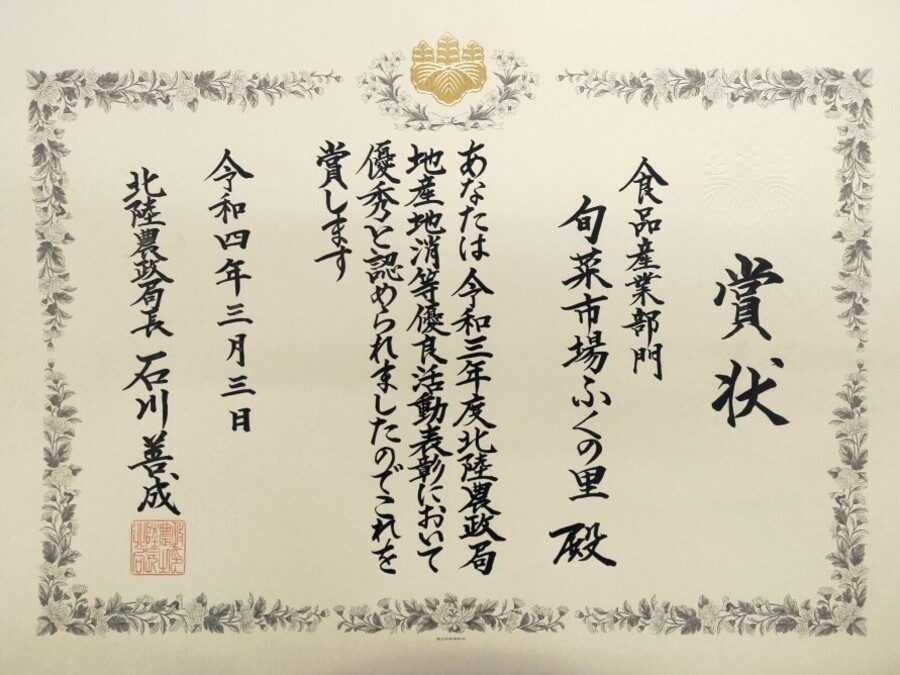 賞状
食品産業部門
旬菜市場ふくの里 殿
あなたは令和三年度北陸農政局
地産地消等優良活動表彰において
優秀と認められましたのでこれを
賞します
令和四年三月三日
北陸農政局長 石川善成